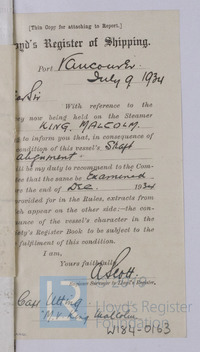 [This Copy for attaching to Report.]
Lloyd's Register of Shipping.
Port, Vancouver
July 9 1934
Sir
With reference to the
now being held on the Steamer
KING, MALCOLM.
to inform you that, in consequence of
condition of this vessel's Shaft
alignment
will be my duty to recommend to the Com-
that the same be Examined
the end of Dec. 1934
provided for in the Rules, extracts from
which appear on the other side:—the con-
of the vessel's character in the
Register Book to be subject to the
fulfilment of this condition.
I am,
Yours faithfully,
A Scott
Surveyor to Lloyd's Register.
Capt. Utting
M.V. King Malcolm
Lloyd's Register
Foundation
W184-0163